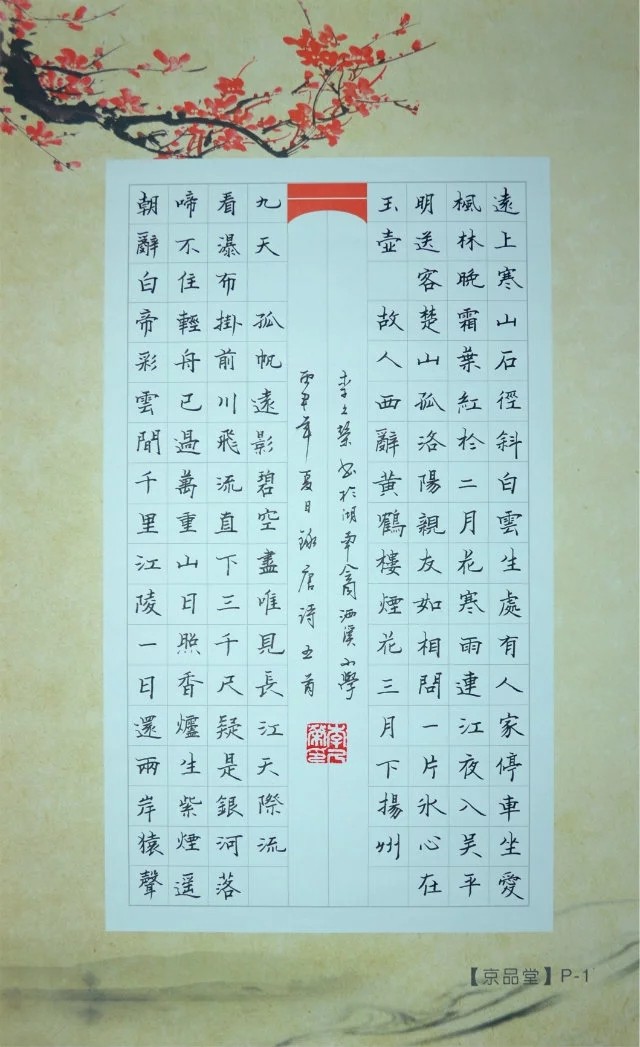 遠上寒山石徑斜白雲生處有人家停車坐愛
楓林晚霜葉紅於二月花寒雨連江夜入吴平
明送客楚山孤洛陽親友如相問一片冰心在
玉壺 故人西辭黃鶴樓煙花三月下揚州
孤帆遠影碧空盡唯見長江天際流
朝辭白帝彩雲間千里江陵一日還兩岸猿聲
啼不住輕舟已過萬重山日照香爐生紫煙遥
看瀑布掛前川飛流直下三千尺疑是銀河落
九天
丙申年夏日錄唐詩五首
李文榮書於湖南會同洒溪小學
【京品堂】P-1